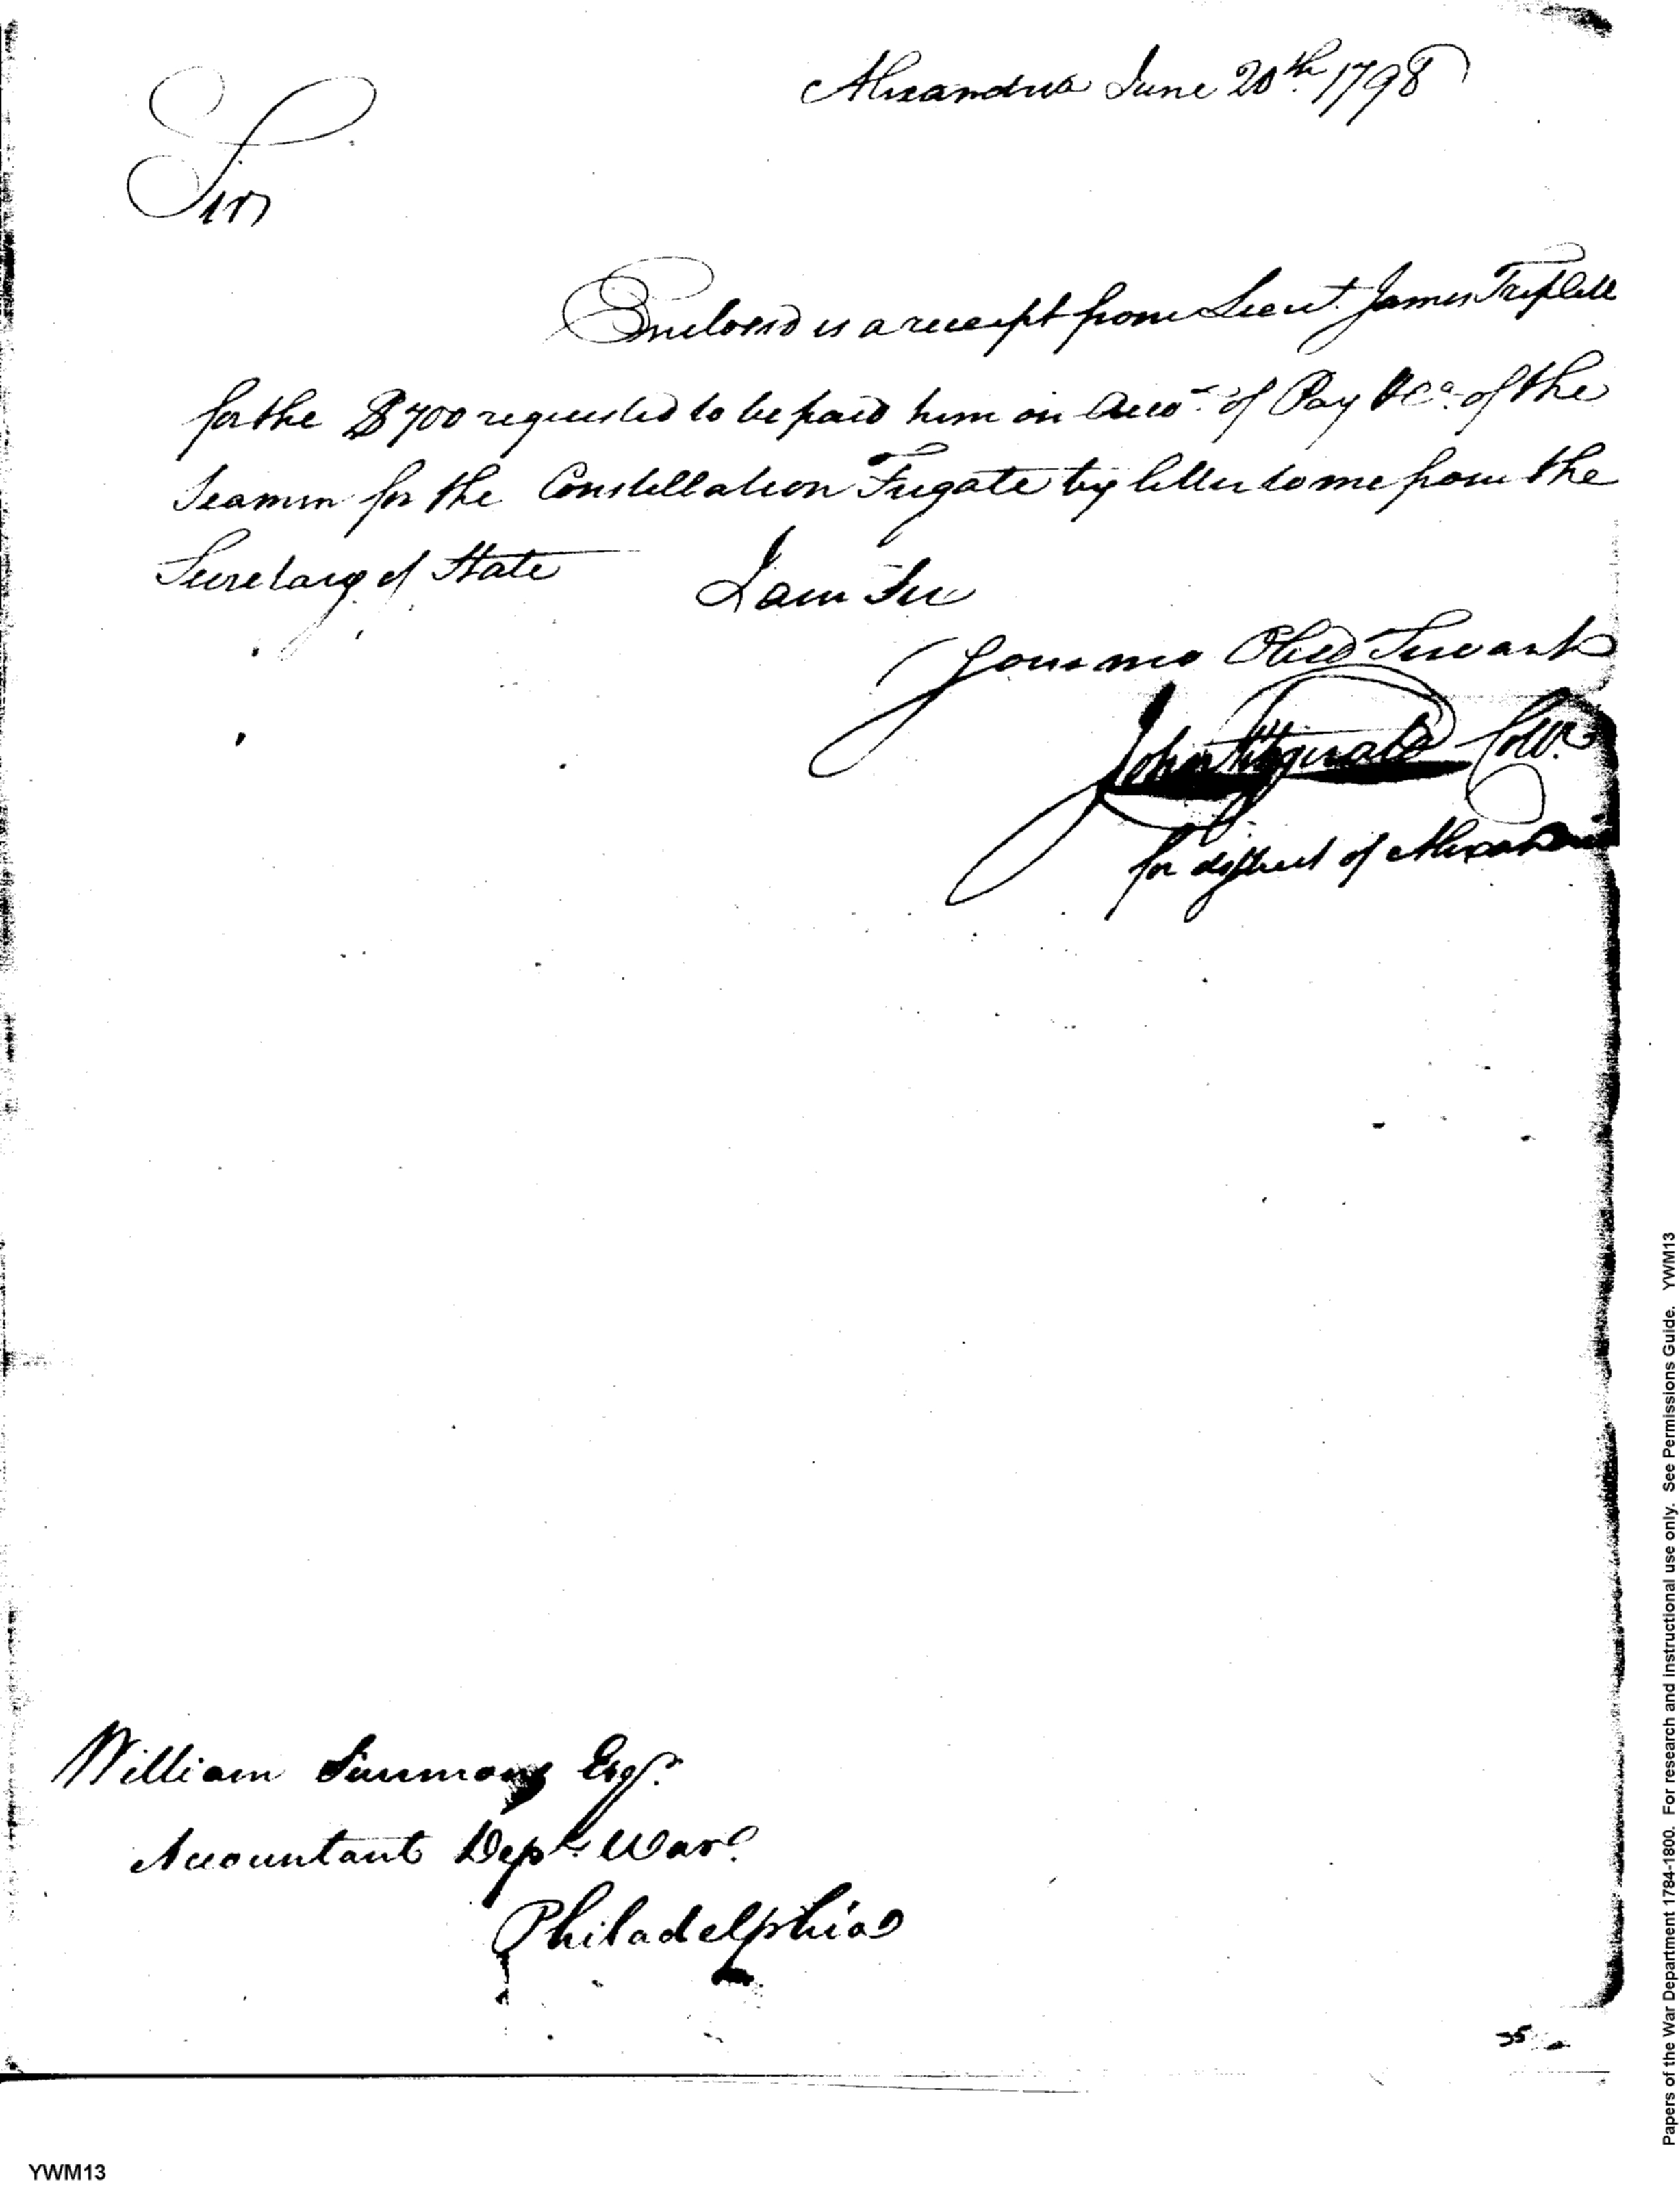 Alexandria June 20th. 1798
Sir
Enclosed is a receipt from Lieut. James Triplett
for the $700 requested to be paid him on Acco.t of Pay &Ca. of the
Seamen for the Constellation Frigate by letter to me from the
Secretary of State I am Sir
Your mo Obed Servant
John Fitzgerald Collr.
for district of Alexandria
William Simmons Esqr.
Accountant Dept. War.
Philadelphia
35
YWM13
Papers of the War Department 1784-1800. For research and instructional use only. See Permissions Guide. YWM13